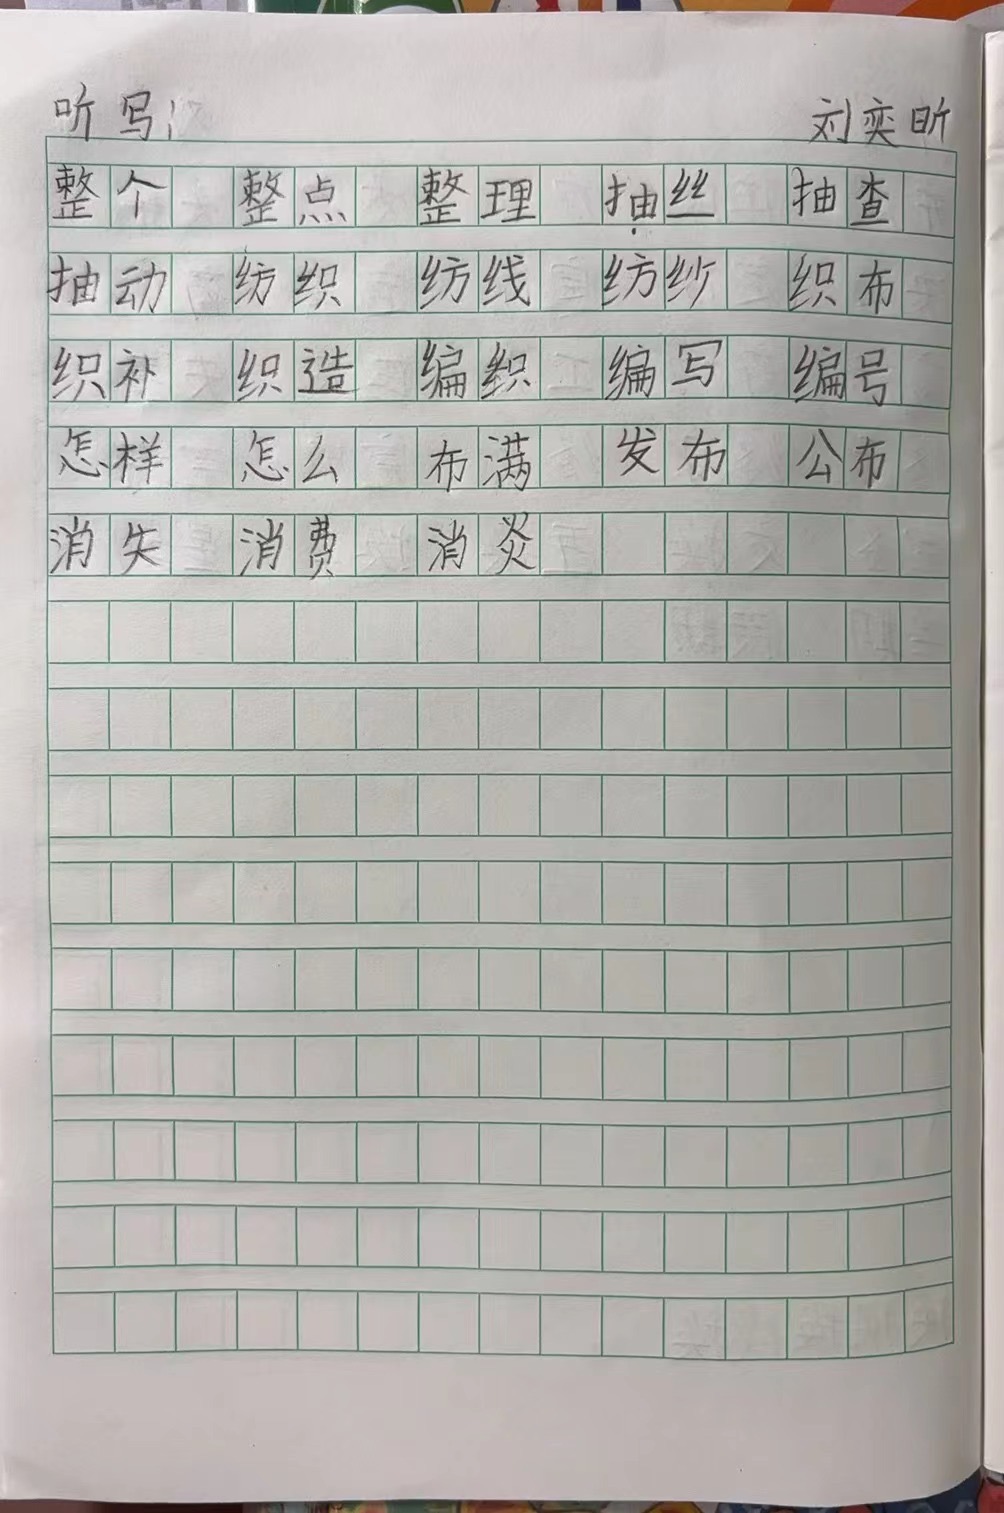 听写 刘奕昕
整个 整点 整理 抽丝 抽查
抽动 纺织 纺线 纺纱 织布
织补 织造 编织 编写 编号
怎样 怎么 布满 发布 公布
消失 消费 消炎